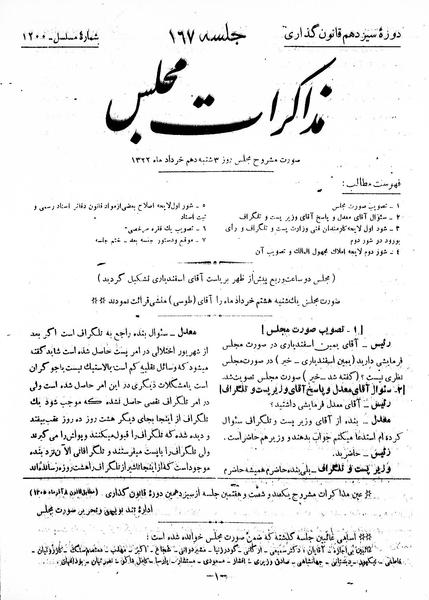 دورهٔ سیزدهم قانون گذاری
جلسه ۱۶۷
شمارهٔ مسلسل ـ ۱۲۰۰
مذاکرات مجلس
صورت مشروح مجلس روز ۳ شنبه دهم خرداد ماه ۱۳۲۲
فهرست مطالب :
۱ ـ تصویب صورت مجلس
۲ ـ سئوال آقای معدل و پاسخ آقای وزیر پست و تلگراف
۳ ـ شور اول لایحه کارمندان فنی وزارت پست و تلگراف و رأی
بورود دو شور دوم
۴ ـ شور دوم لایحه املاک مجهول المالک و تصویب آن
۵ ـ شور اول لایحه اصلاح بعضی از مواد قانون دفاتر اسناد رسمی و
ثبت اسناد
۶ ـ تصویب یک فقره مرخصی
۷ ـ موقع و دستور جلسه بعد ـ ختم جلسه
( مجلس دو ساعت و ربع پیش از ظهر بریاست آقای اسفندیاری تشکیل گردید )
صورت مجلس یک شنبه هشتم خرداد ماه را آقای ( طوسی ) منشی قرائت نمودند
[ ۱ ـ تصویب صورت مجلس ]
رئیس ـ آقای یمین اسفندیاری در صورت مجلس
فرمایشی دارید ( یمین اسفندیاری ـ خیر ) در صورت مجلس
نظری نیست ؟ ( گفته شد ـ خیر ) صورت مجلس تصویب شد.
[ ۲ـ سئوال آقای معدل و پاسخ آقای وزیر پست و تلگراف ]
رئیس ـ آقای معدل فرمایشی داشتید ؟
معدل ـ بنده از آقای وزیر پست و تلگراف سئوال
کرده ام استدعا میکنم جواب بدهند و بنده هم حاضرم.
رئیس ـ آقای وزیر پست و تلگراف حاضرید ؟
وزیر پست و تلگراف ـ بلی بنده حاضرم همیشه حاضرم
معدل ـ سئوال بنده راجع به تلگراف است اگر بعد
از شهریور اختلالی در امر پست حاصل شده شاید گفته
میشود که وسائل نقلیه کم است یا لاستیک نیست یا جو گران
است یا مشکلات دیگری در این امر حاصل شده است ولی
در امر تلگراف نقصی حاصل نشده که موجب شود یک
تلگراف از اینجا بجای دیگر هشت روز ده روز عقب بیفتد
و دیده شده که تلگراف را قبول میکنند و پولش را می گیرند
و این تلگراف را با پست میفرستند و تلگرافی الآن نزد بنده
موجود است که از اینجا تا شیراز تلگراف را هشت روزه رسانده اند
عین مذاکرات مشروح یکصد و شصت و هفتمین جلسه از سیزدهمین دورهٔ قانون گذاری
ادارهٔ تند نویسی و تحریر صورت مجلس
اسامی غائبین جلسه گذشته که ضمن صورت مجلس خوانده شده است :
ـ ۱ ـ